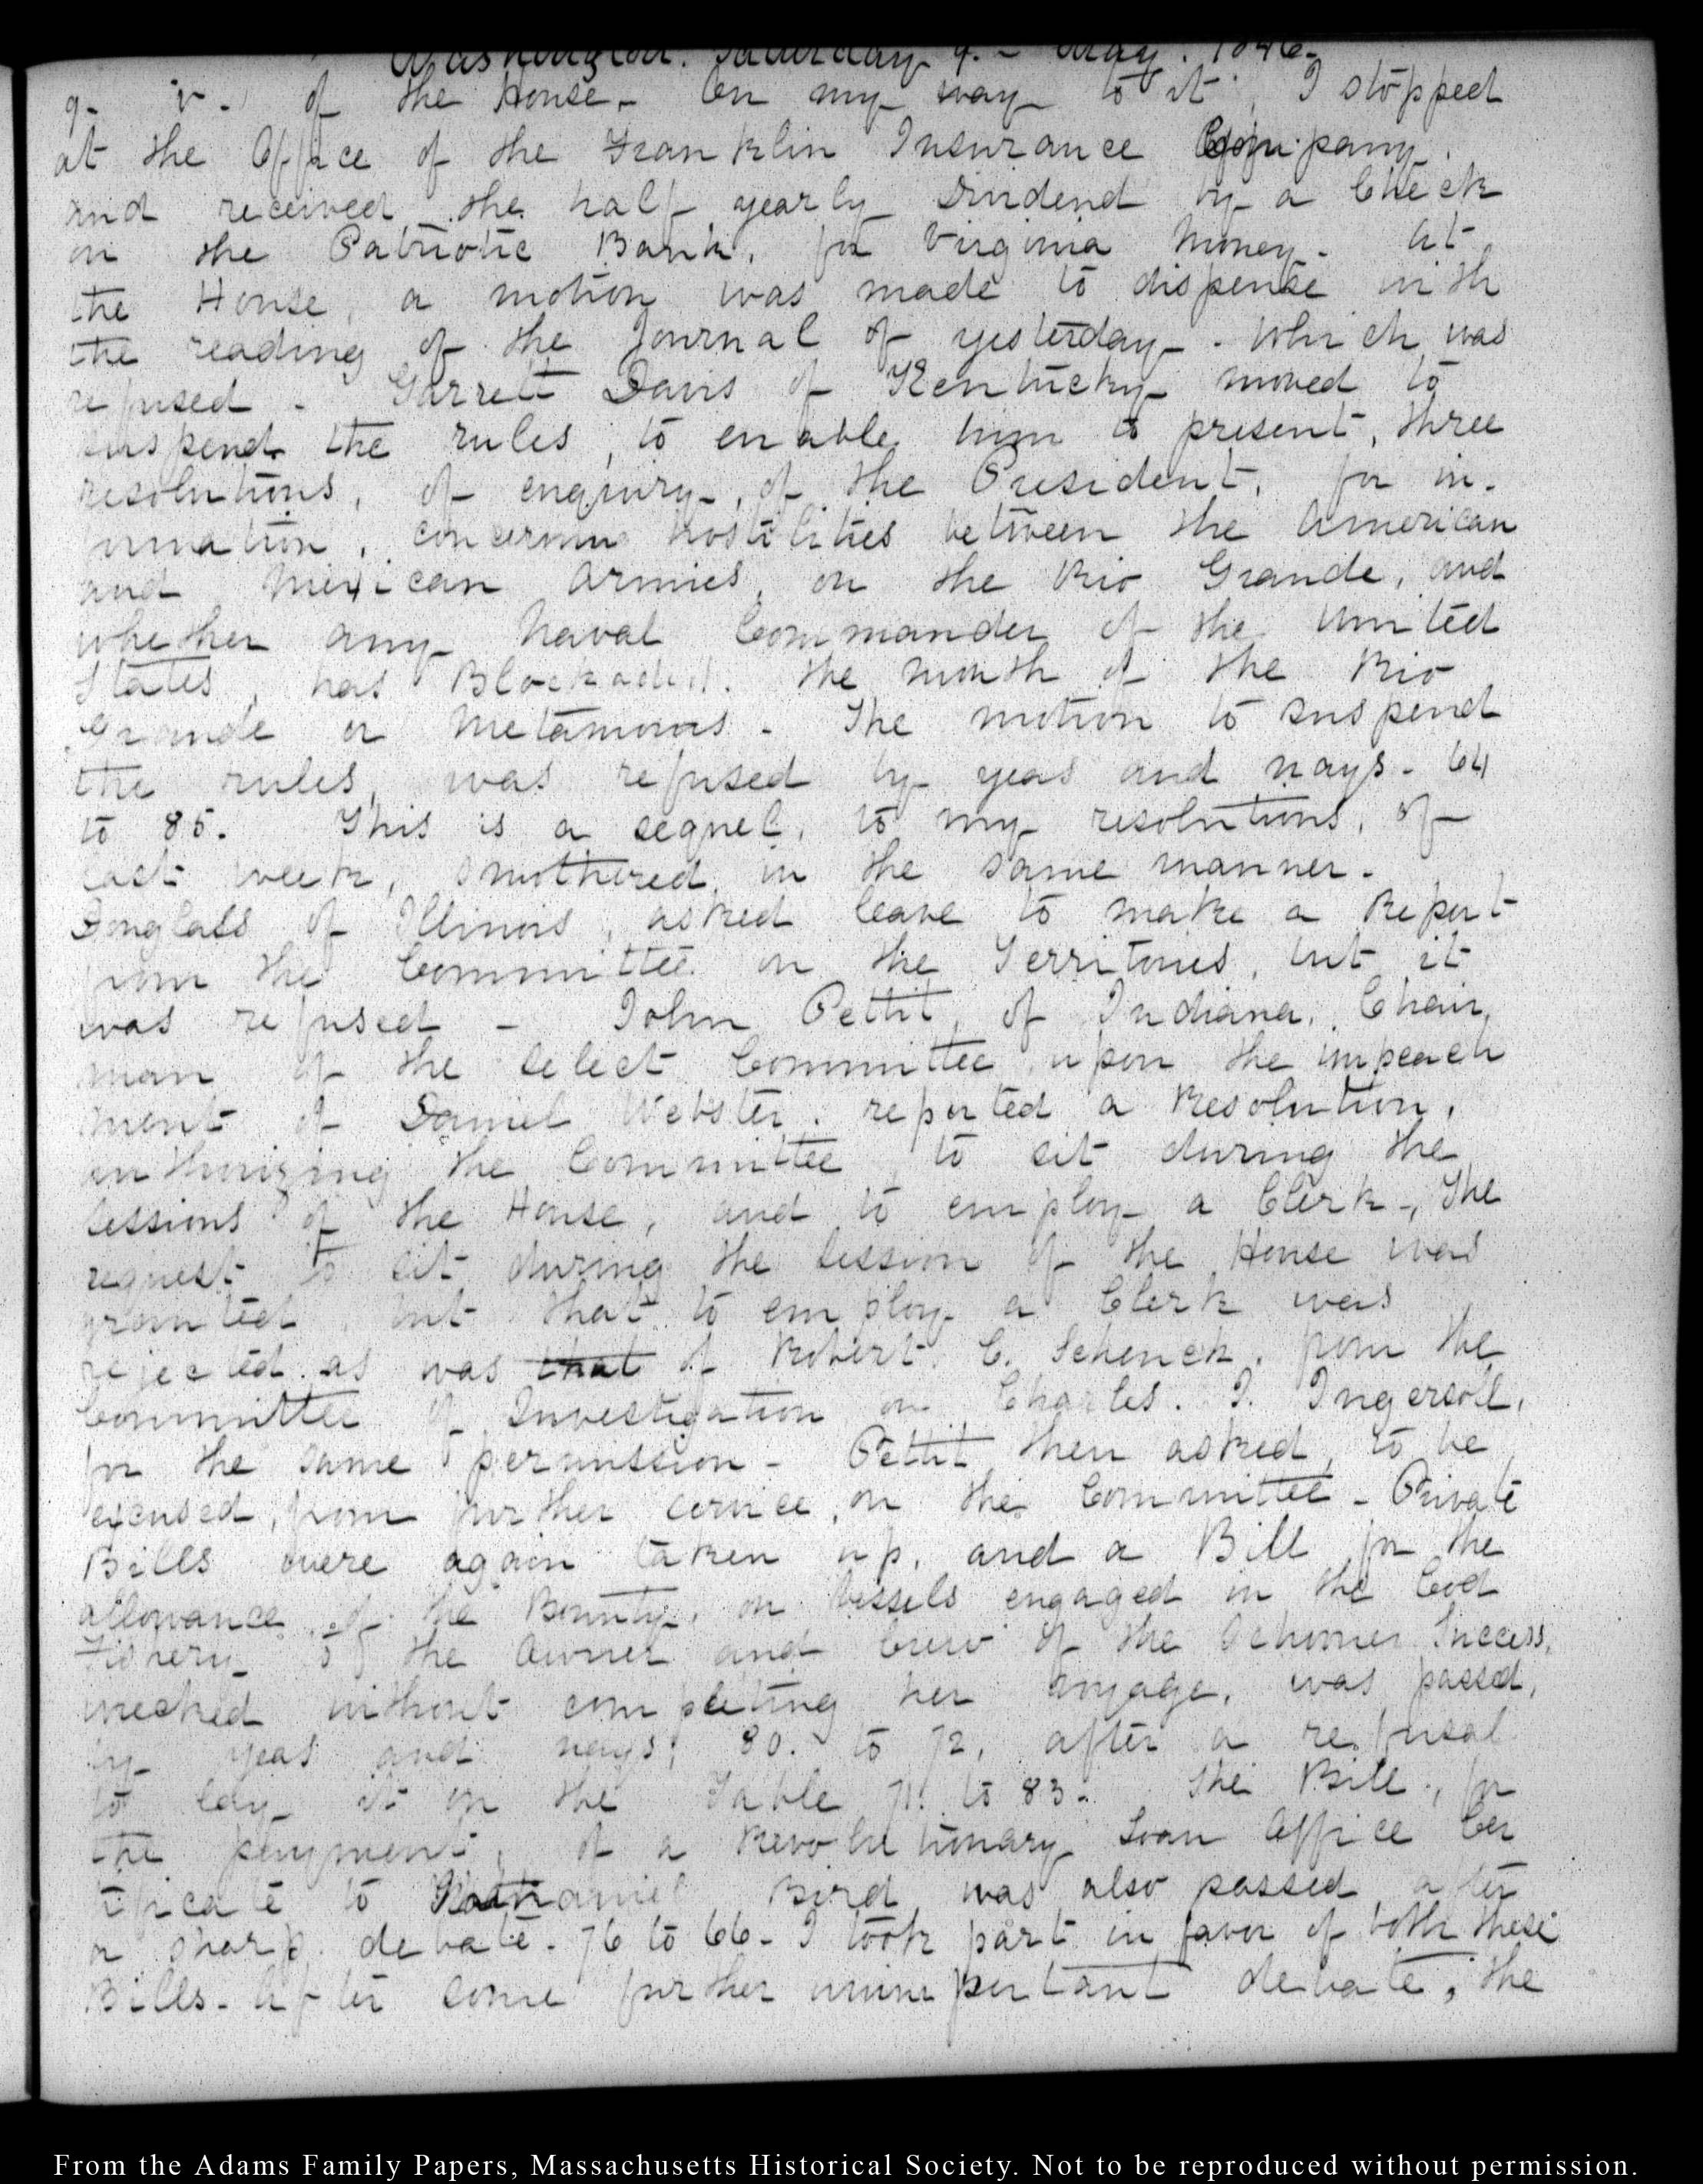 Washington. Saturday 9. – May. 1846.
9. V. of the House. On my way to it, I stopped
at the Office of the Franklin Insurance Company.
and received the half yearly Dividend by a Check
on the Patriotic Bank, for Virginia Money. At
the House, a motion was made to dispense with
the reading of the Journal of yesterday. which was
refused. Garrett Davis of Kentucky moved to
suspend the rules, to enable him to present, three
resolutions, of enquiry, of the President, for in-
formation, concerning hostilities between the American
and Mexican Armies, on the Rio Grande, and
whether any Naval Commander of the United
States, has Blockaded. the mouth of the Rio
Grande or Metamoras. The motion to suspend
the rules, was refused by yeas and nays. 64
to 85. This is a sequel, to my resolutions, of
last week, smothered, in the same manner.
Douglass of Illinois, asked leave to make a Report
from the Committee on the Territories, but it
was refused – John Pettit, of Indiana, Chair,
man of the select Committee upon the impeach
ment of Daniel Webster. reported a Resolution,
authorizing the Committee to sit during the
sessions of the House, and to employ a Clerk –, The
request to sit during the session of the House was
granted, but that to employ a Clerk was
rejected. as was that of Robert. C. Schenck, from the
Committee of Investigation on Charles. J. Ingersoll,
for the same permission – Pettit then asked, to be
excused, from further service, on the Committee – Private
Bills were again taken up, and a Bill for the
allowance of the Bounty, on vessels engaged in the Cod
Fishery to the Owner and Crew of the Schooner Success,
wrecked without completing her voyage, was passed,
by yeas and nays; 80. to 72, after a refusal
to lay it on the Table 71. to 83. The Bill, for
the payment, of a Revolutionary Loan Office Cer
tificate to Nathaniel Bird was also passed after
a sharp debate. 76 to 66. I took part in favor of both these
Bills. After some further unimportant debate, the
From the Adams Family Papers, Massachusetts Historical Society. Not to be reproduced without permission.